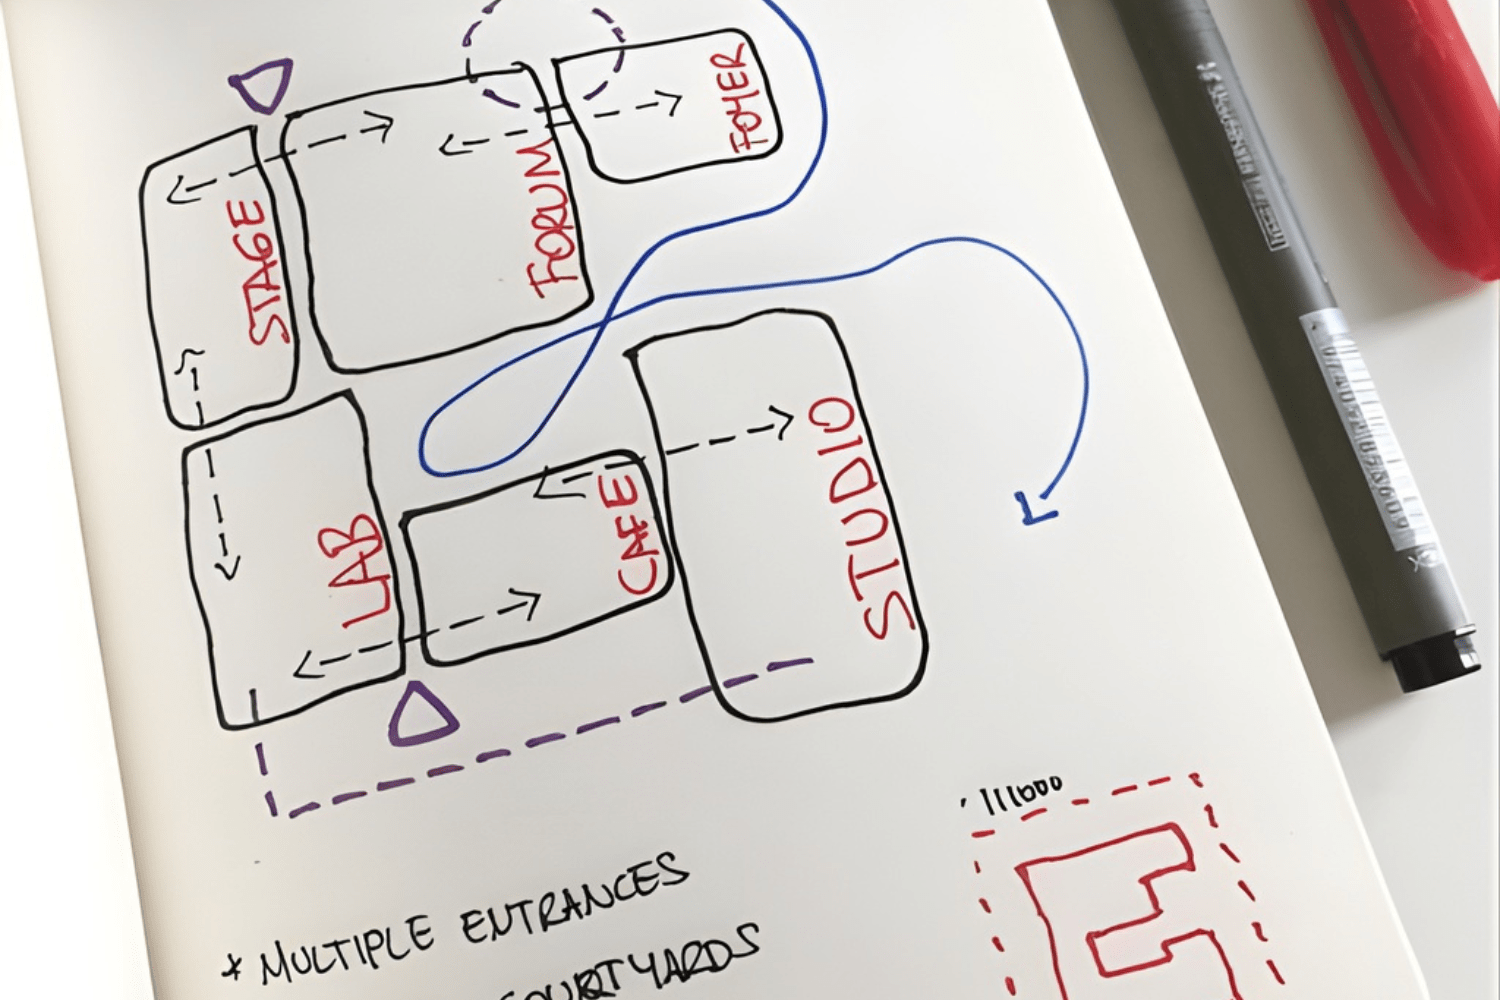 FOYER
FORUM
STAGE
STUDIO
CAFE
LAB
* MULTIPLE ENTRANCES
COURTYARDS